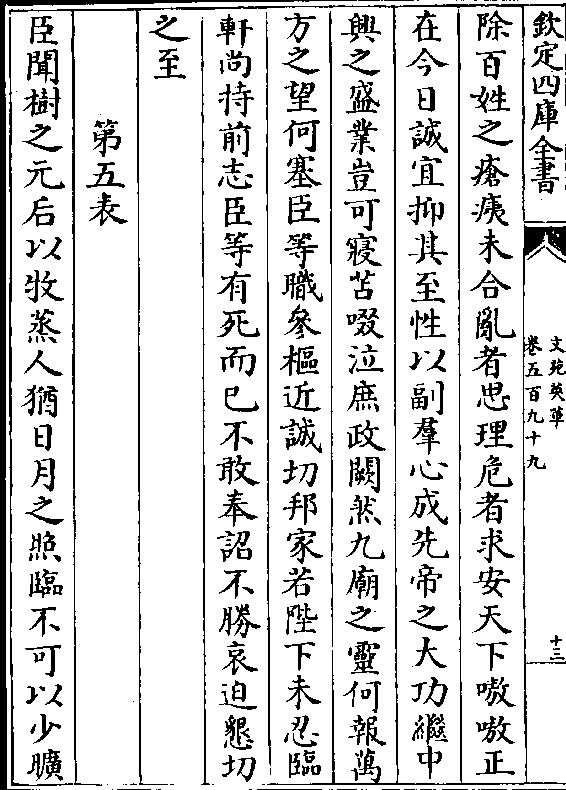 欽定四庫全書
文苑英華
卷五百九十九
十三
除百姓之瘡痍未合亂者思理危者求安天下嗷嗷正
在今日誠宜抑其至性以副羣心成先帝之大功繼中
興之盛業豈可寢苫啜泣庶政闕然九廟之靈何報萬
方之望何塞臣等職參樞近誠切邦家若陛下未忍臨
軒尚持前志臣等有死而已不敢奉詔不勝哀迫懇切
之至
第五表
臣聞樹之元后以牧蒸人猶日月之照臨不可以少曠